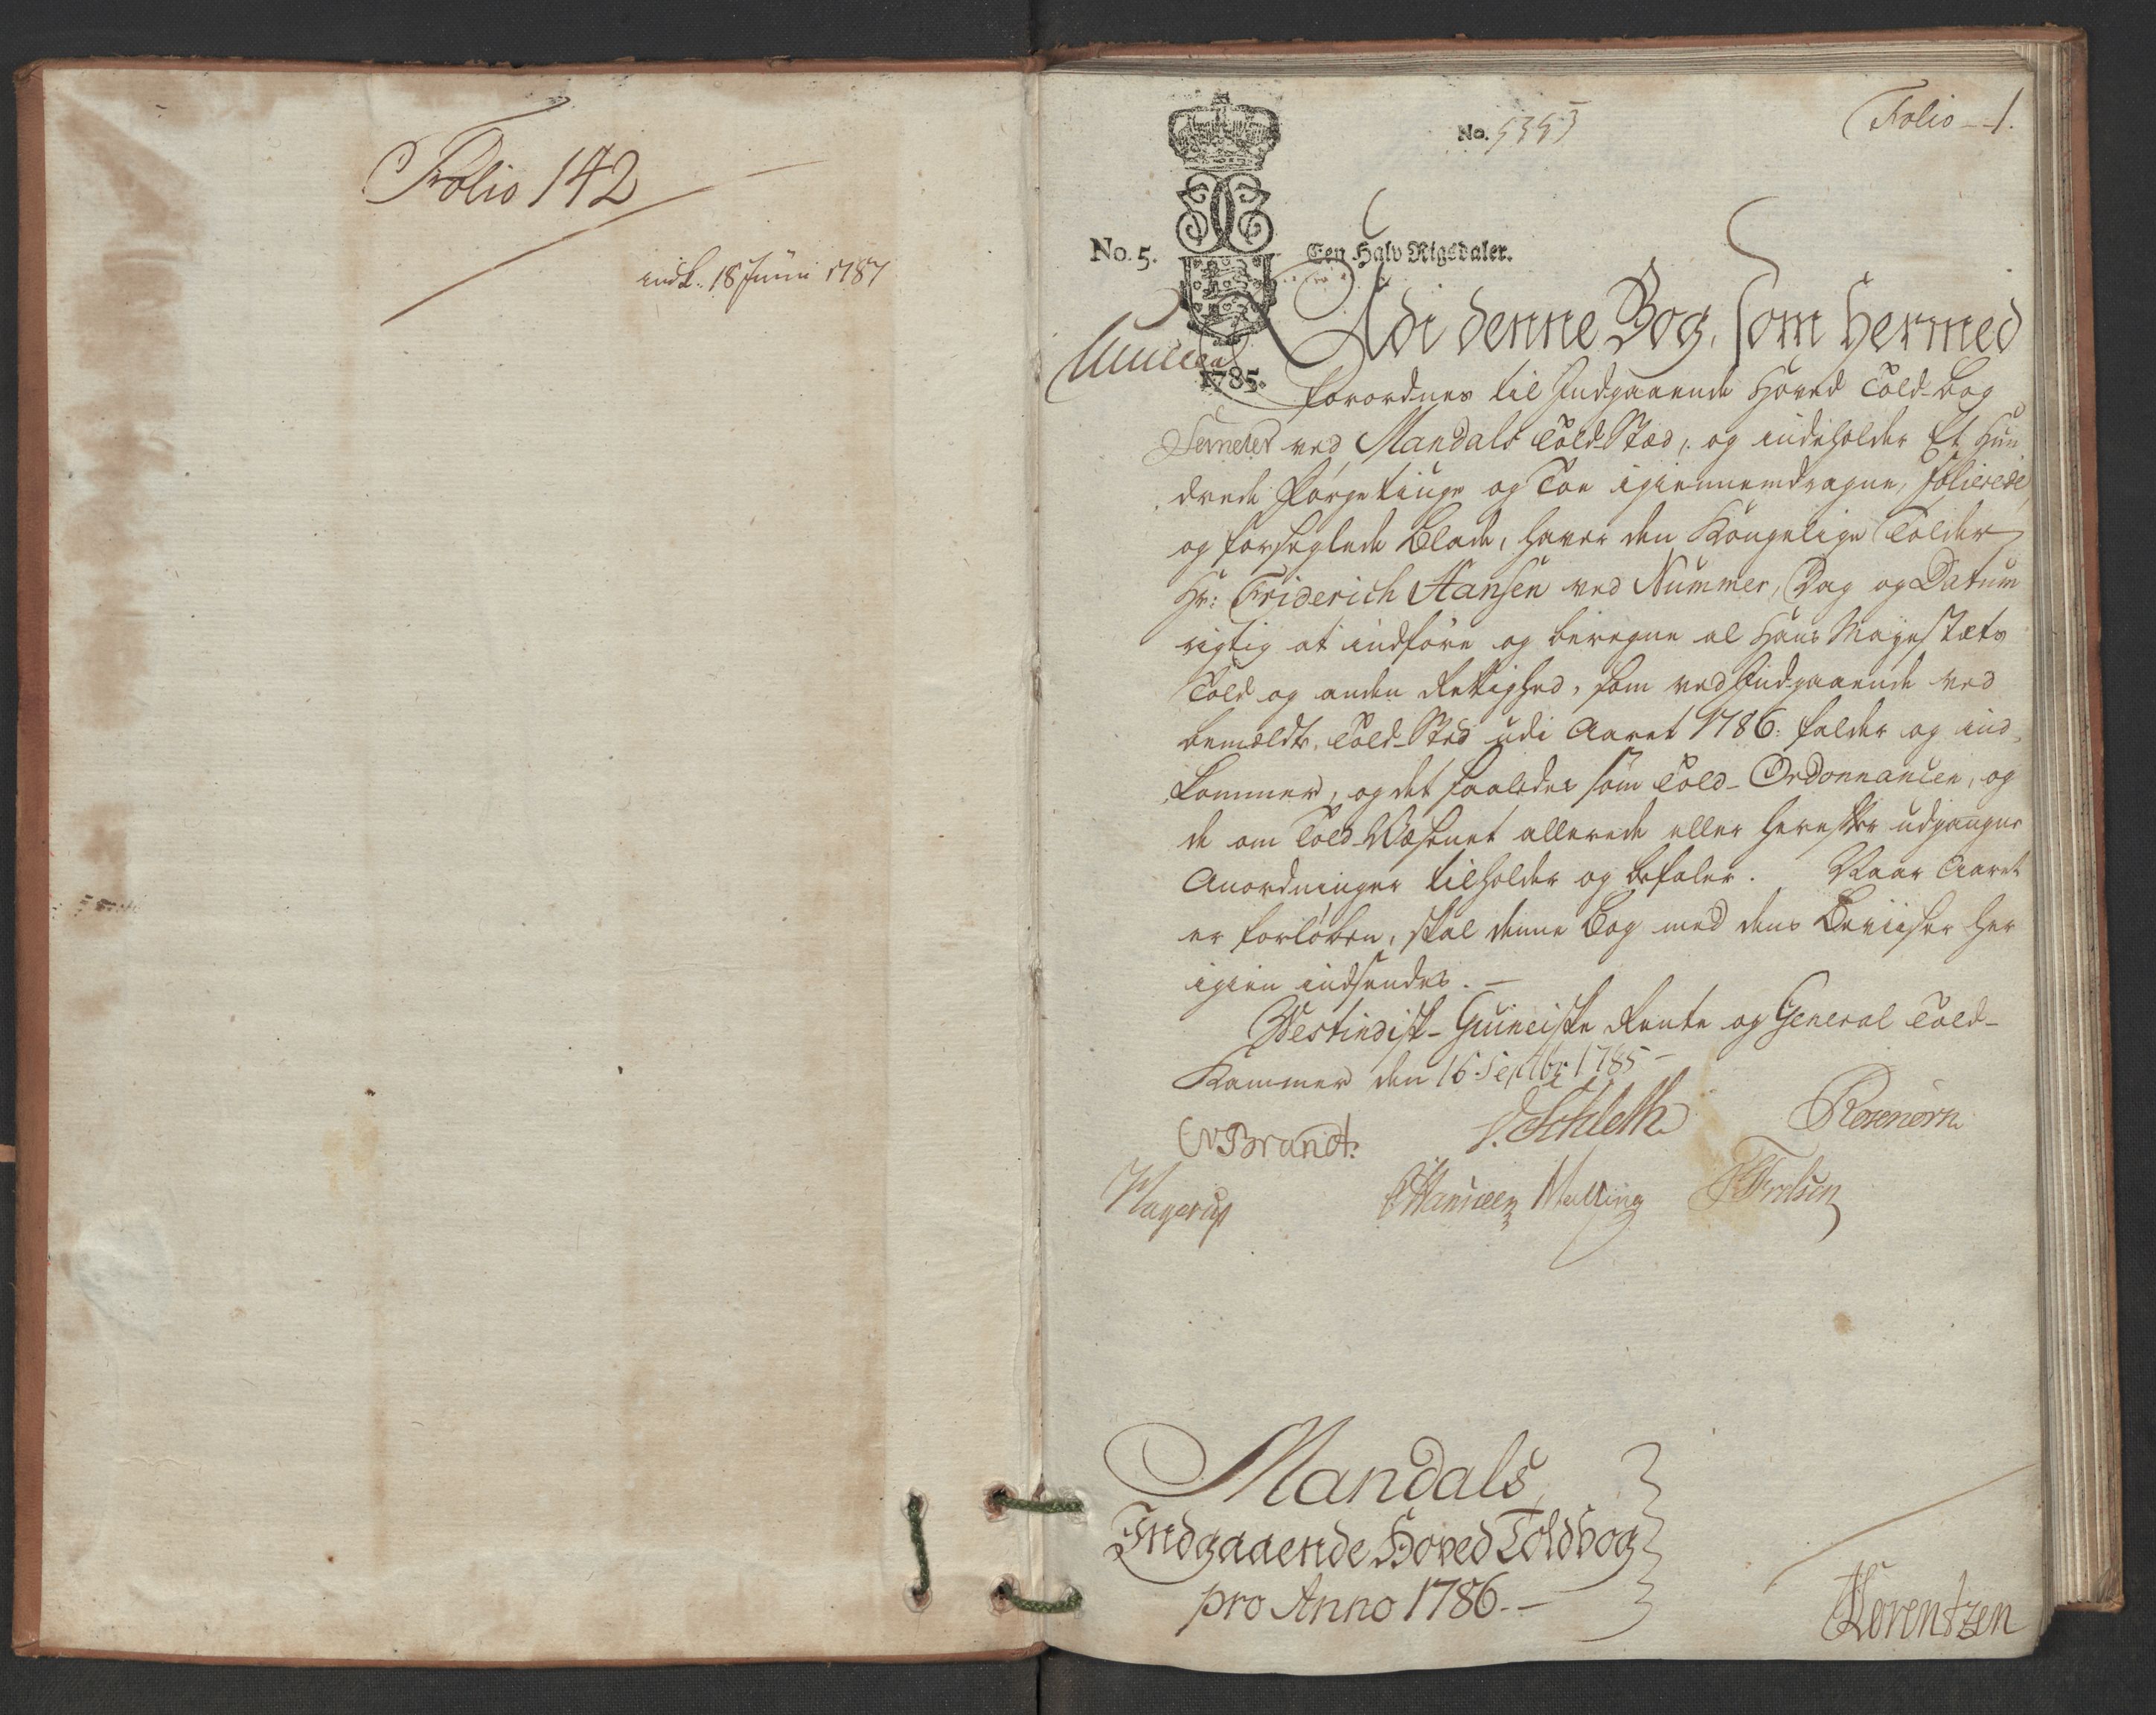 Folio 142
indk. 18 Junii 1787
No. 5353
Folio 1.
No. 5.
Een Halv Rigsdaler.
1785.
Udi denne Bog, som hermed
forordnes til Indgaaende Hoved Told-Bog
ved Mandals Told-Stæd, og indeholder Et Hun-
drede Førgetiuge og Toe igiennemdragne, folierede
og forseglede Blade, haver den Kongelige Tolder
Hr: Friderich Hansen ved Nummer, Dag og Datum
rigtig at indføre og beregne al Hans Mayestæts
Told og anden Rettighed, som ved Indgaaende ved
bemeldte Told-Sted udi Aaret 1786. falder og ind-
kommer, og det saaledes som Told-Ordonnancen, og
de om Told-Væsenet allerede eller herefter udgangne
Anordninger tilholder og befaler. Naar Aaret
er forløben, skal denne Bog med dens Beviiser her
igien indsendes.
Westindisk-Guineiske Rente og General Told-
Kammer den 16. Septbr. 1785
CvBrandt.
Schleth
Rosenørn
Hagerup
Malling
Mandals
Indgaaende Hoved Toldbog
pro Anno 1786.
Lorentzen